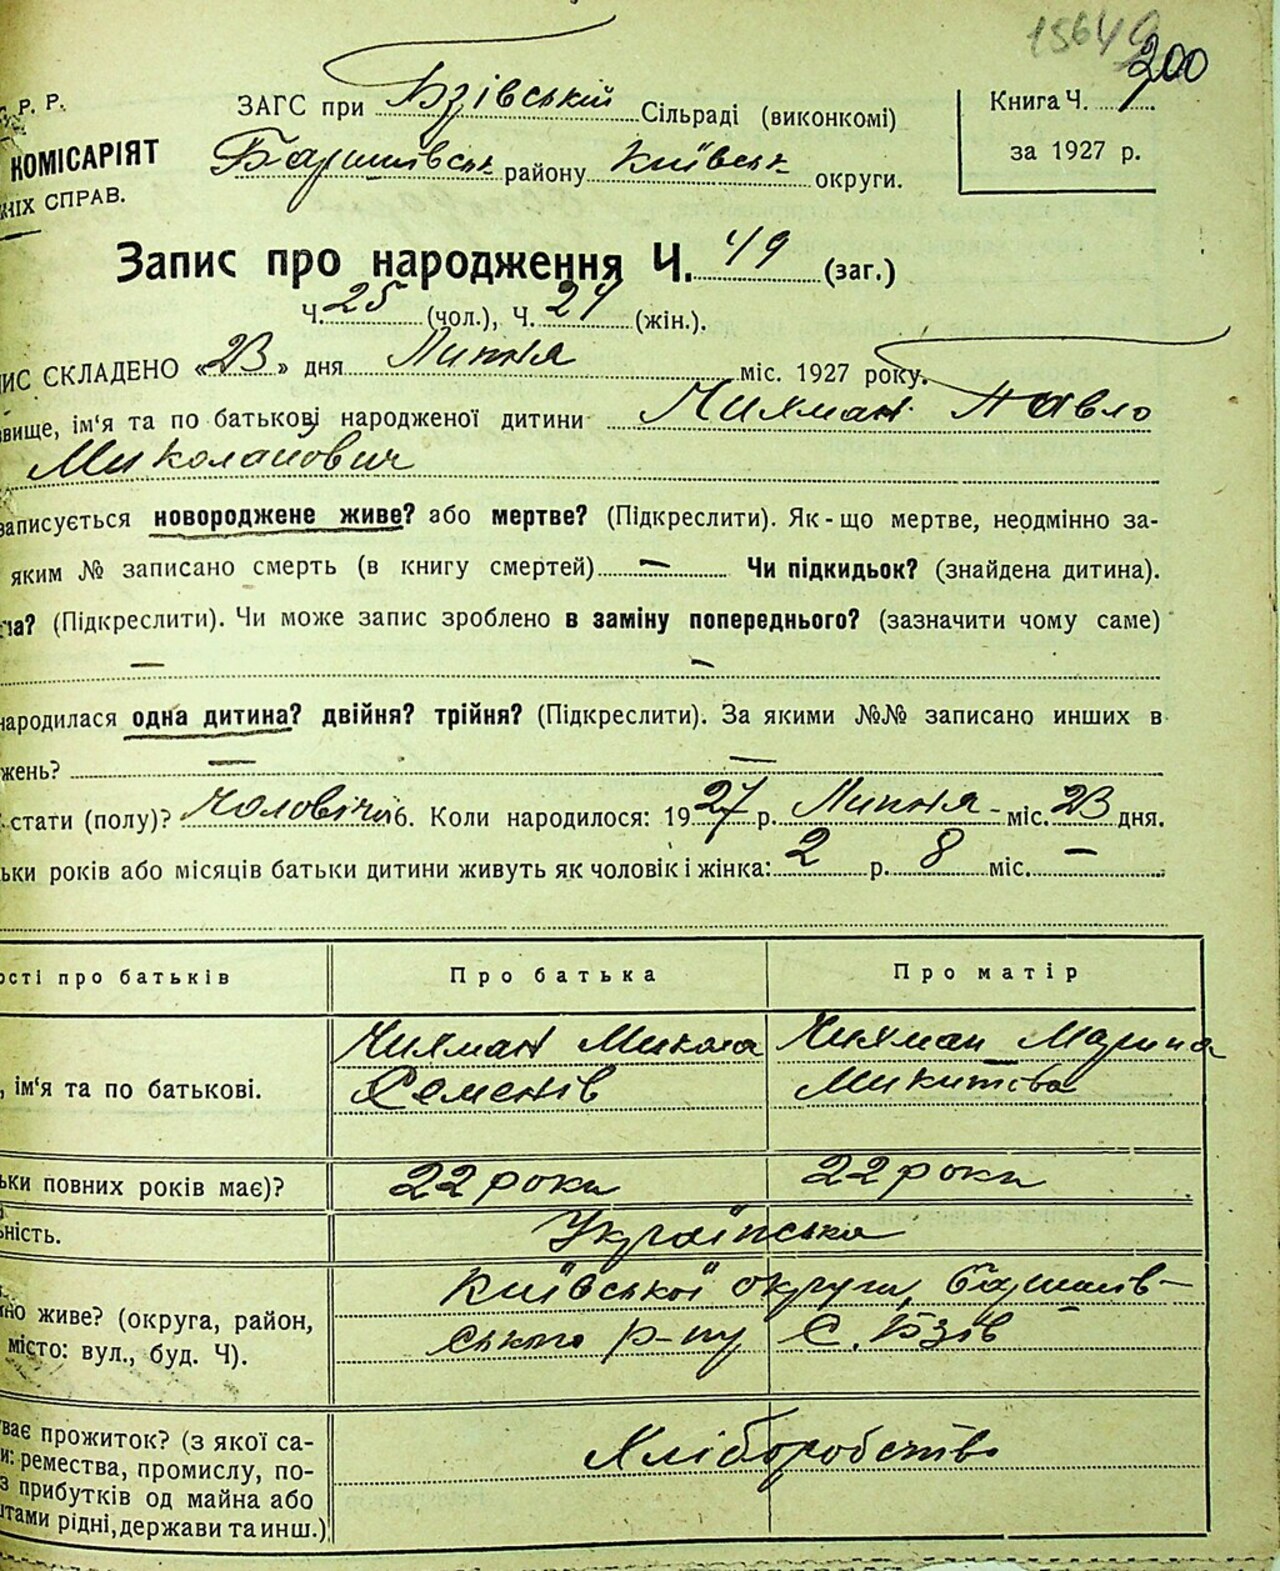 15649
200
Р. Р.
КОМІСАРІЯТ
СПРАВ.
ЗАГС при Бзівській Сільраді (виконкомі)
Баришівськ району Київськ округи.
Книга Ч. 1
за 1927 р.
Запис про народження Ч. 49 (заг.)
Ч. 25 (чол.), Ч. 24 (жін.).
ИС СКЛАДЕНО «23» дня Липня міс. 1927 року.
вище, ім'я та по батькові народженої дитини Чихман Павло
Миколайович
записується новороджене живе? або мертве? (Підкреслити). Як-що мертве, неодмінно за-
яким № записано смерть (в книгу смертей) — Чи підкидьок? (знайдена дитина).
на? (Підкреслити). Чи може запис зроблено в заміну попереднього? (зазначити чому саме)
— —
народилася одна дитина? двійня? трійня? (Підкреслити). За якими №№ записано инших в
жень? — —
стати (полу)? Чоловічоі б. Коли народилося: 1927 р. Липня міс. 23 дня.
ьки років або місяців батьки дитини живуть як чоловік і жінка: 2 р. 8 міс. —
ості про батьків
Про батька
Про матір
, ім'я та по батькові.
Чихман Микола
Семенів
Чихман Марина
Микитівна
ьки повних років має)?
22 роки
22 роки
ність.
Українська
но живе? (округа, район,
місто: вул., буд. Ч).
Київської округи, Баришів-
ського р-ну С. Бзів
ває прожиток? (з якої са-
и: ремества, промислу, по-
з прибутків од майна або
штами рідні, держави та инш.)
Хліборобство